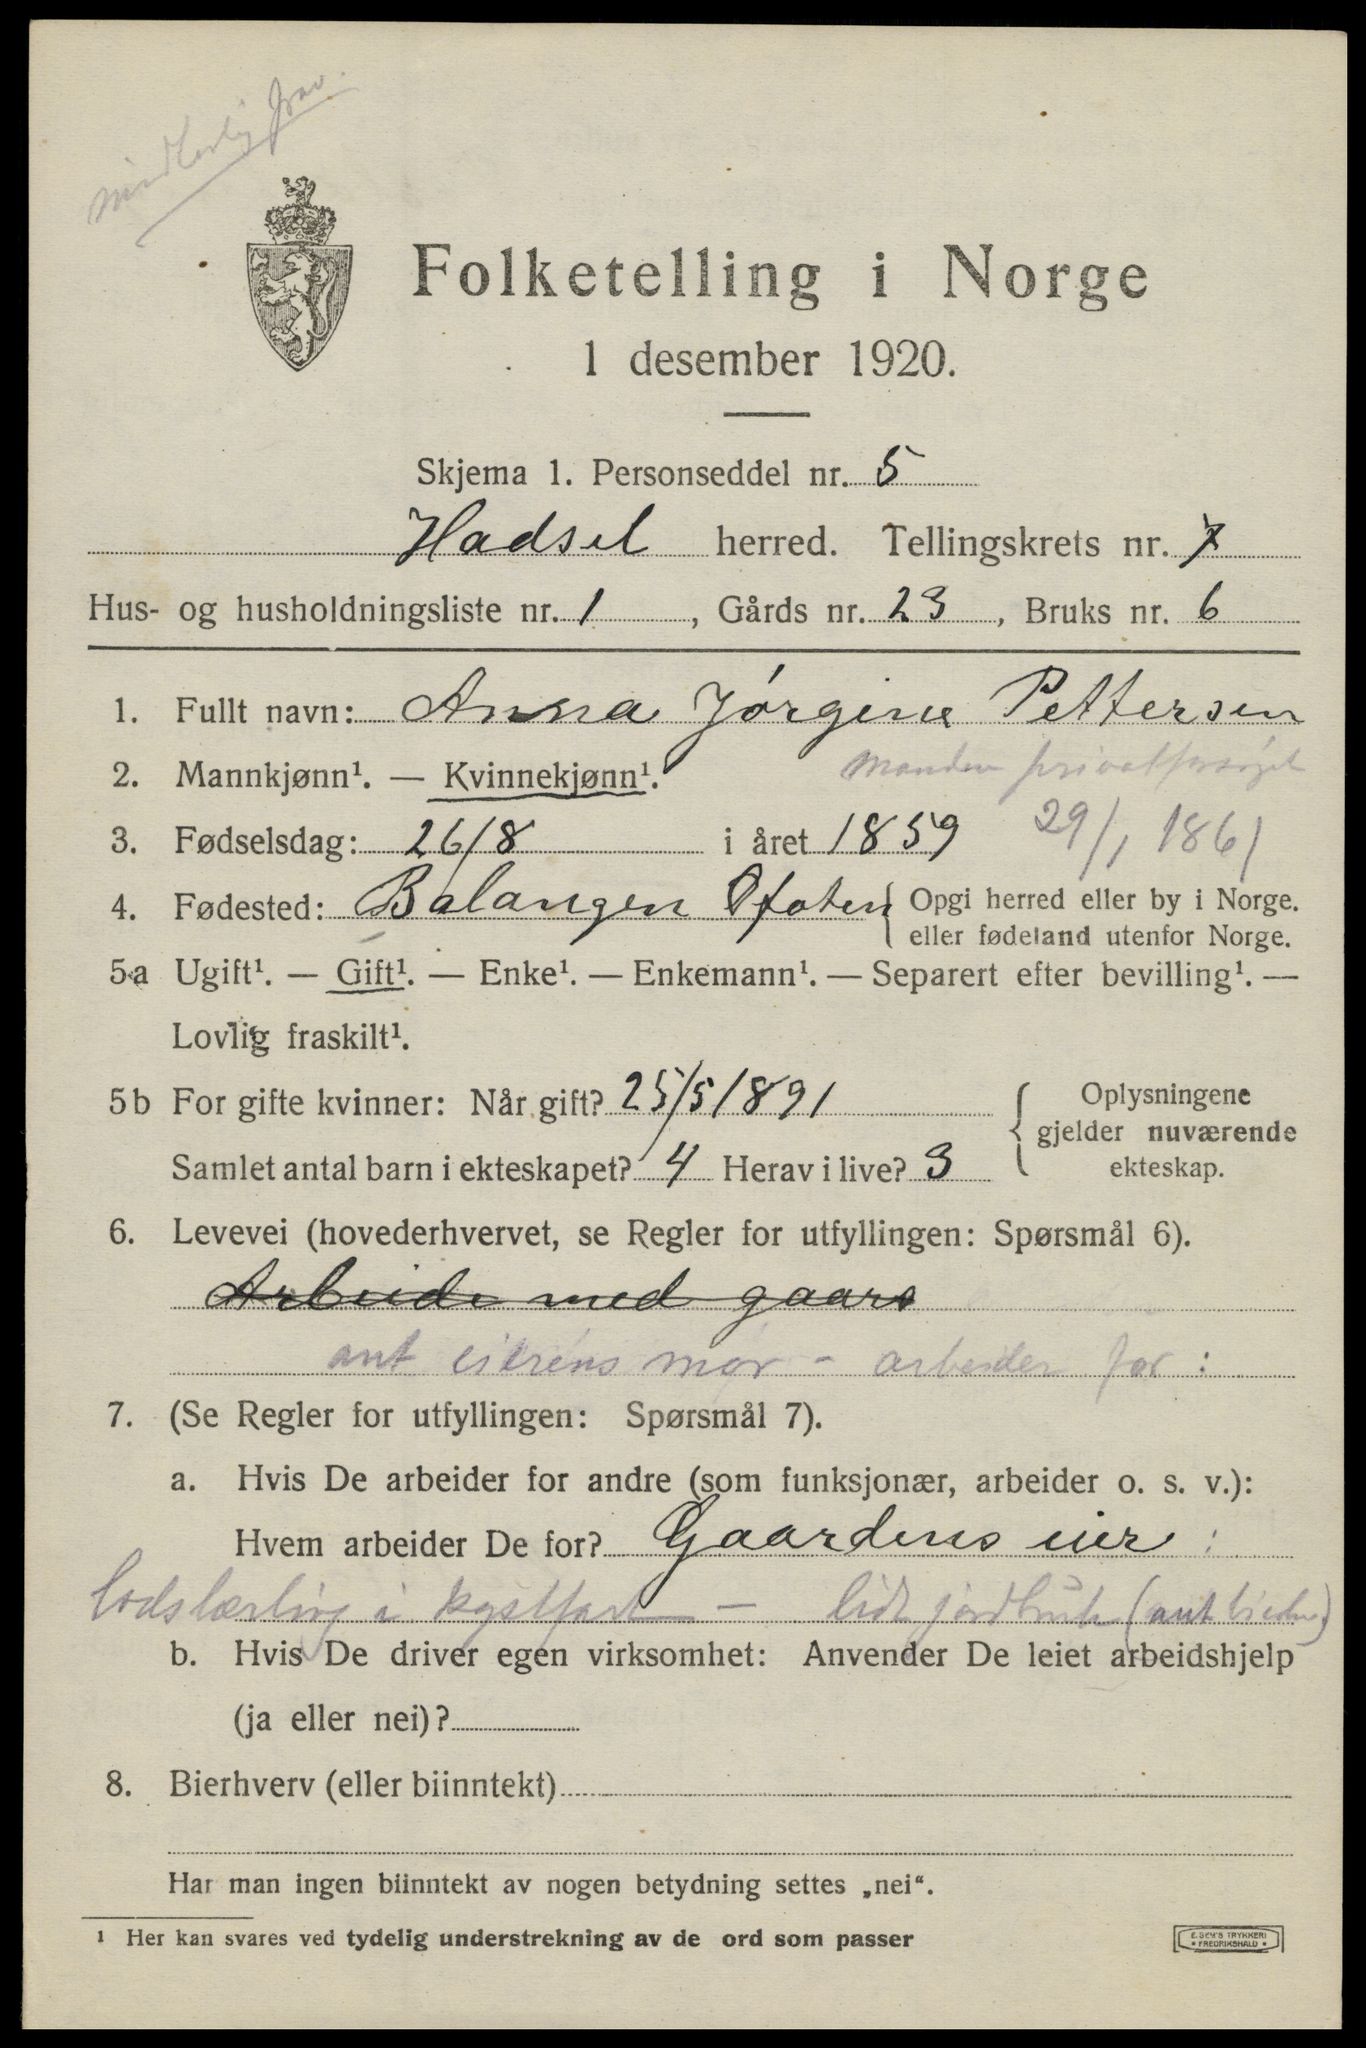 midlertig frav.
Folketelling i Norge
1 desember 1920.
Skjema 1. Personseddel nr. 5
Hadsel herred. Tellingskrets nr. 7
Hus- og husholdningsliste nr. 1, Gårds nr. 23, Bruks nr. 6
1. Fullt navn: Anna Jørgine Pettersen
2. Mannkjønn¹. — Kvinnekjønn¹. Manden privatforsørget
3. Fødselsdag: 26/8 i året 1859 29/1 1861
4. Fødested: Balangen Ofoten { Opgi herred eller by i Norge.
eller fødeland utenfor Norge.
5a Ugift¹. — Gift¹. — Enke¹. — Enkemann¹. — Separert efter bevilling¹. —
Lovlig fraskilt¹.
5b For gifte kvinner: Når gift? 25/5 1891 { Oplysningene
gjelder nuværende
Samlet antal barn i ekteskapet? 4 Herav i live? 3 ekteskap.
6. Levevei (hovederhvervet, se Regler for utfyllingen: Spørsmål 6).
Arbeide med gaars
ant eierens mor - arbeider for :
7. (Se Regler for utfyllingen: Spørsmål 7).
a. Hvis De arbeider for andre (som funksjonær, arbeider o. s. v.):
Hvem arbeider De for? Gaardens eier :
lodslærling i kystfart — lidt jordbruk (ant
b. Hvis De driver egen virksomhet: Anvender De leiet arbeidshjelp
(ja eller nei)?
8. Bierhverv (eller biinntekt)
Har man ingen biinntekt av nogen betydning settes „nei“.
¹ Her kan svares ved tydelig understrekning av de ord som passer
E. SEM'S TRYKKERI
FREDRIKSHALD